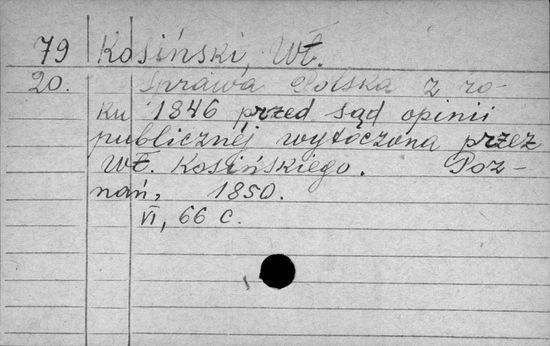 79 Kosiński, Wł.
20. Sprawa Polska z ro-
ku 1846 przed sąd opinii
publicznéj wytoczona przez
Wł. Kosińskiego. Poz-
nań, 1850.
VI, 66 c.